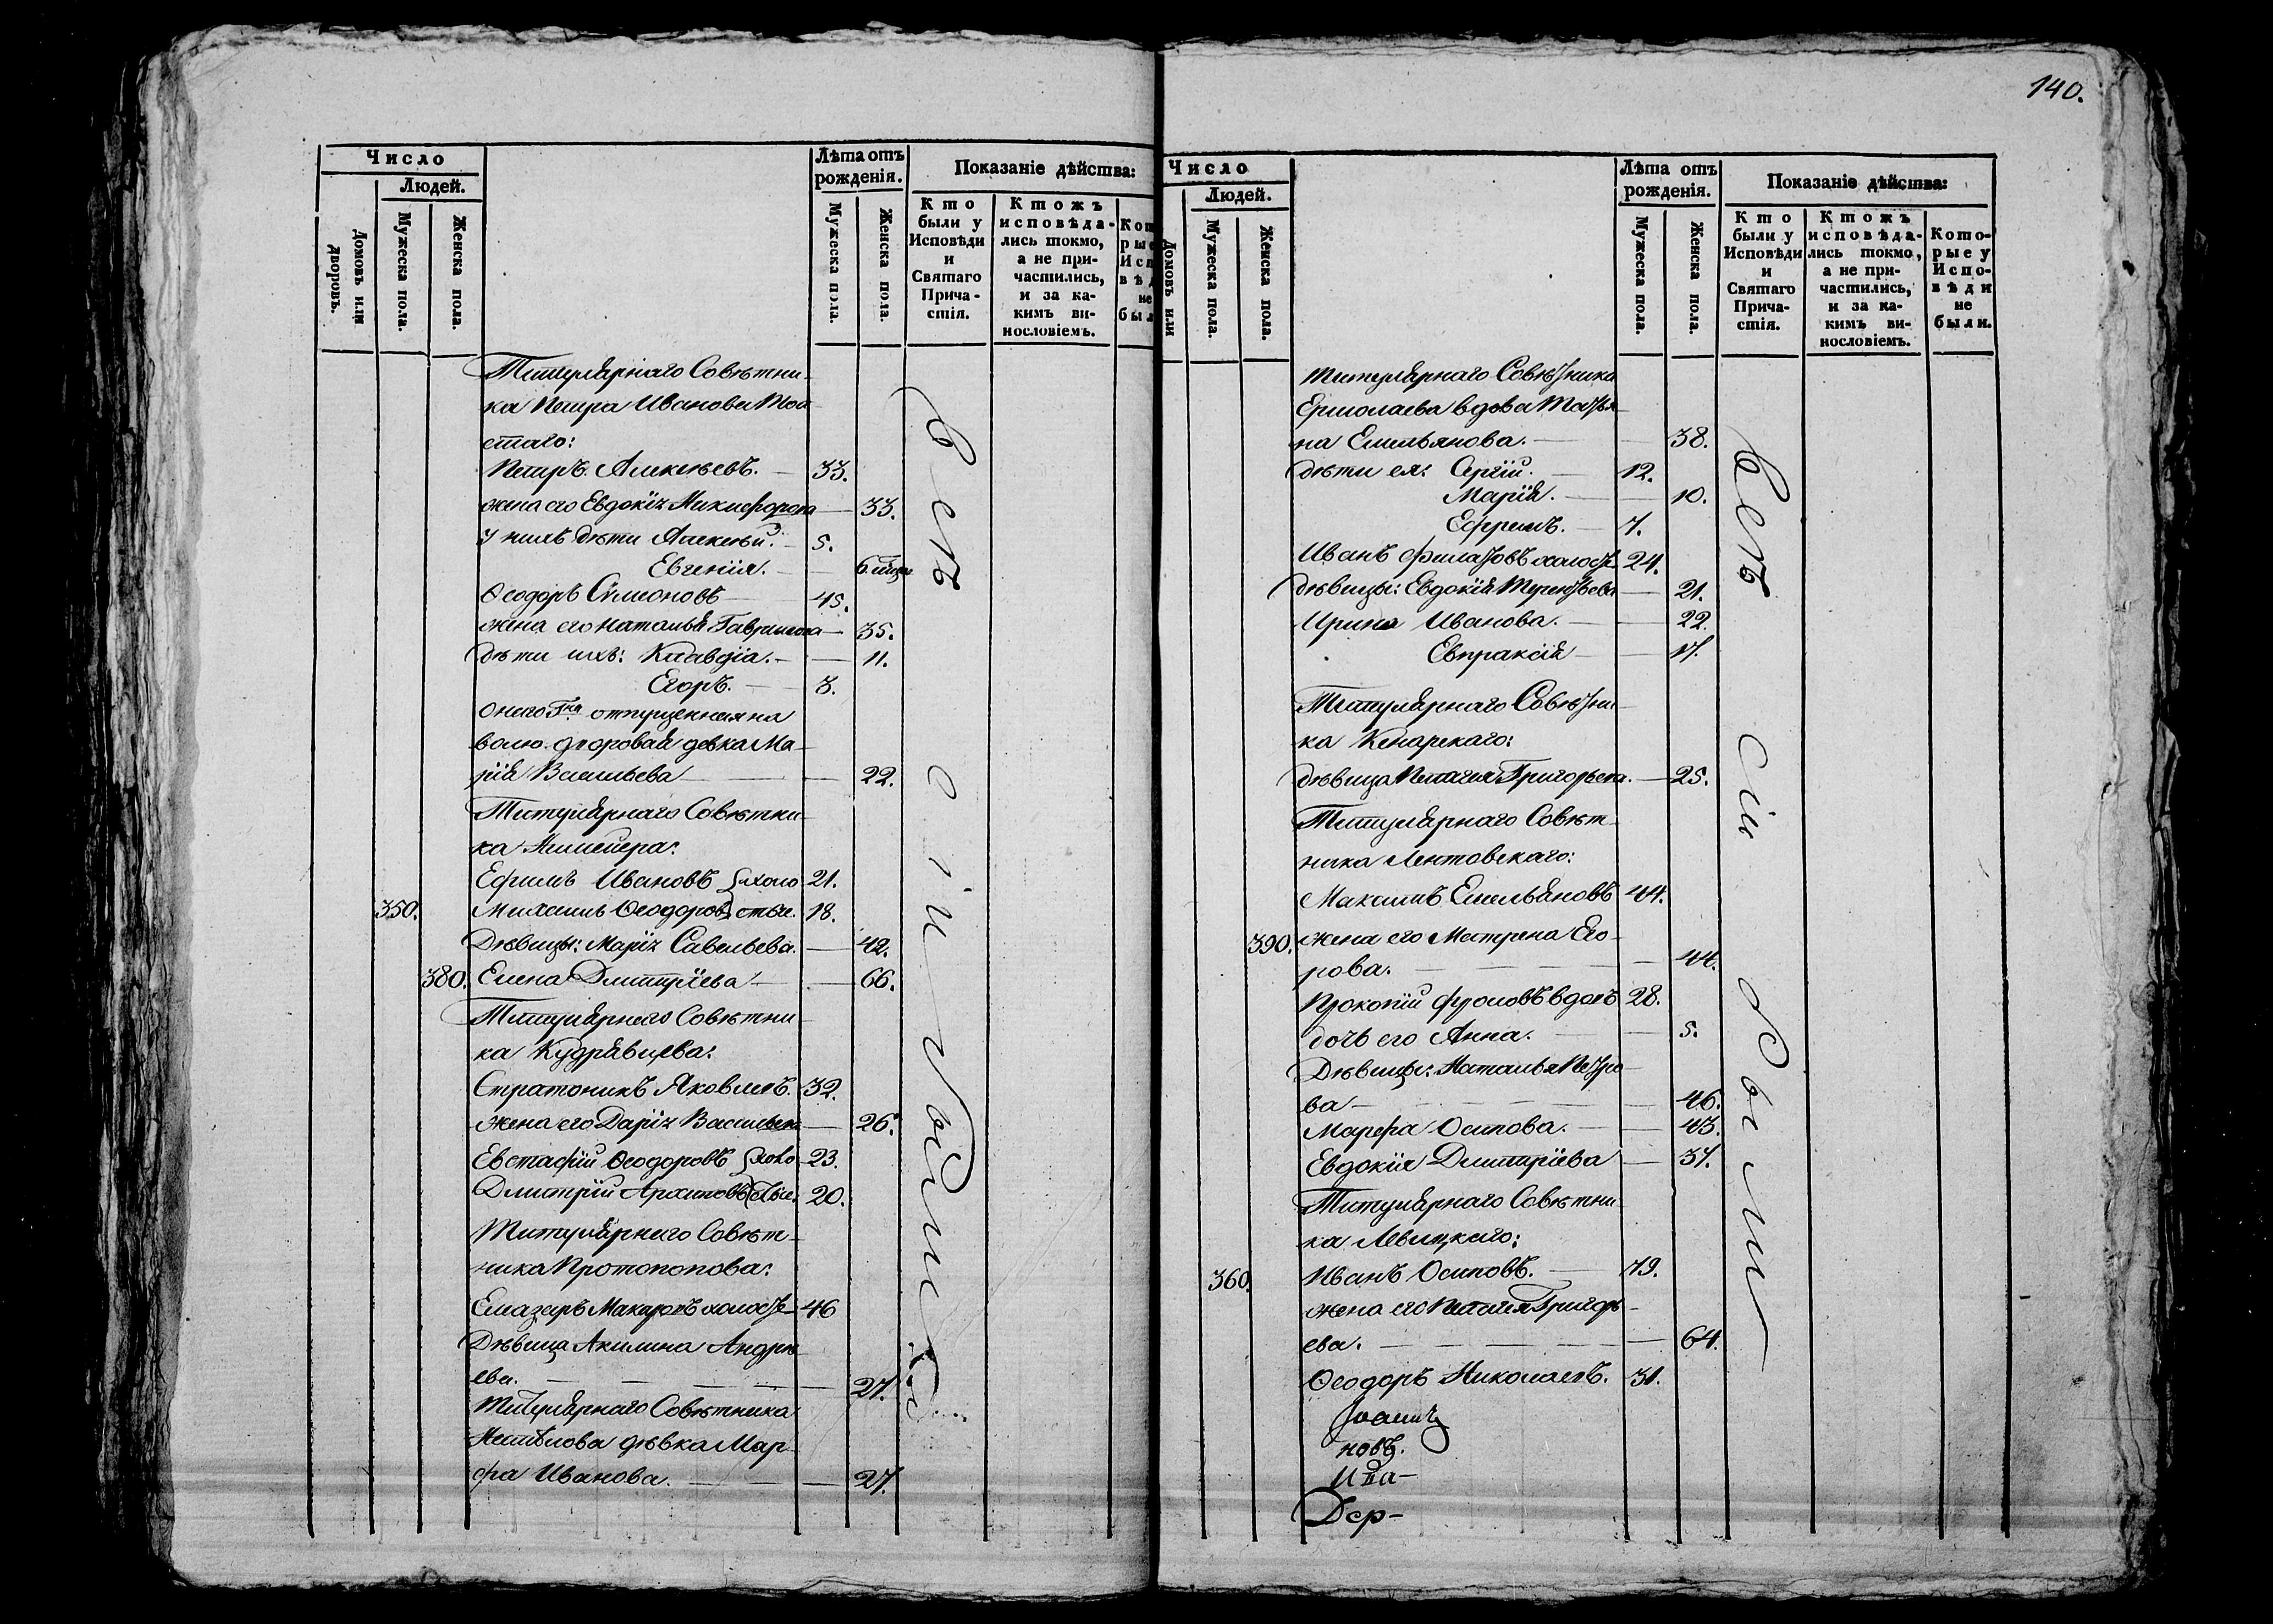 140.
Число
Людей.
Домовъ или дворовъ.
Мужеска пола.
Женска пола.
Лѣта отъ рожденія.
Мужеска пола.
Женска пола.
Показаніе дѣйства:
Кто были у Исповѣди и Святаго Прича-стія.
Ктожъ исповѣда-лись токмо, а не при-частились, и за ка-кимъ ви-нословіемъ.
Титулярнаго Совѣтни-
ка Петра Иванова Тол
стаго:
Петръ Алексѣевъ. — 33.
жена его Евдокія Никифорова — 33.
у нихъ дѣти Алексѣй. — 5.
Евгенія. — 6. мѣся
Ѳеодоръ Сѵмеоновъ — 45.
жена его Наталья Гаврилова — 35.
дѣти ихъ: Клавдіа. — 11.
Егоръ. — 3.
Онаго Гна отпущенная на
волю дворовая девка Ма-
рія Васильева — 22.
Титулярнаго Совѣтни-
ка
Ефимъ Ивановъ холо 21.
350. Михаилъ Ѳеодоровъ стые. 18.
Дѣвицы: Марія Савельева. — 42.
380. Елена Дмитріева — 66.
Титулярнаго Совѣтни-
ка Кудрявцева:
Стратоникъ Яковлевъ. 32.
жена его Дарія Васильева — 26.
Евстафій Ѳеодоровъ холо 23.
Дмитрій Архиповъ стые. 20.
Титулярнаго Совѣт-
ника Протопопова:
Елазаръ Макаровъ холостъ — 46
Дѣвица Акилина Андрѣ
ева. — 27.
Титулярнаго Совѣтника
дѣвка Мар-
фа Иванова. — 27.
Всѣ сіи были
Число
Людей.
Домовъ или
Мужеска пола.
Женска пола.
Лѣта отъ рожденія.
Мужеска пола.
Женска пола.
Показаніе дѣйства:
Кто были у Исповѣди и Святаго Прича-стія.
Ктожъ исповѣда-лись токмо, а не при-частились, и за ка-кимъ ви-нословіемъ.
Кото-рые у Испо-вѣди не были.
Титулярнаго Совѣтника
Ермолаева вдова Татья-
на Емельянова. — 38.
дѣти ея: Сергій. — 12.
Марія. — 10.
Ефремъ. — 7.
Иванъ Филатовъ холостъ 24.
дѣвицы: Евдокія Терентьева — 21.
Ирина Иванова. — 22.
Евпраксія — 17.
Титулярнаго Совѣтни-
ка Кенарскаго:
дѣвица Пелагея Григорьева. — 25.
Титулярнаго Совѣт-
ника Лентовскаго:
Максимъ Емельяновъ 44.
390. жена его Матрена Его-
рова. — 44.
Прокопій Фроловъ вдовъ 28.
дочь его Анна. — 5.
Дѣвицы: Наталья Петро-
ва — 46.
Марфа Осипова. — 43.
Евдокія Дмитріева — 37.
Титулярнаго Совѣтни-
ка Левицкаго:
360. Иванъ Осиповъ. — 79.
жена его Пелагея Григорь-
ева. — 64.
Ѳеодоръ Николаевъ. 31.
новъ.
Дер-
Всѣ сіи были